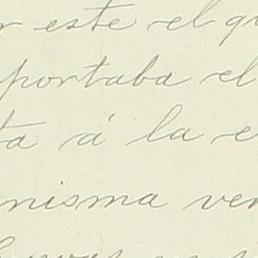 r este el q
portaba el
ta á la e
misma ve